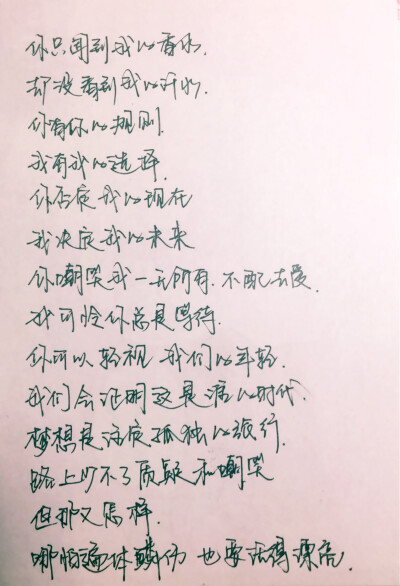 你只闻到我的香水.
却没看到我的汗水.
你有你的规则.
我有我的选择.
你否定我的现在
我决定我的未来
你嘲笑我一无所有.不配去爱.
我可怜你总是等待.
你可以轻视 我们的年轻.
我们会证明这是谁的时代.
梦想是注定孤独的旅行.
路上少不了质疑和嘲笑
但那又怎样.
哪怕遍体鳞伤 也要活得漂亮.